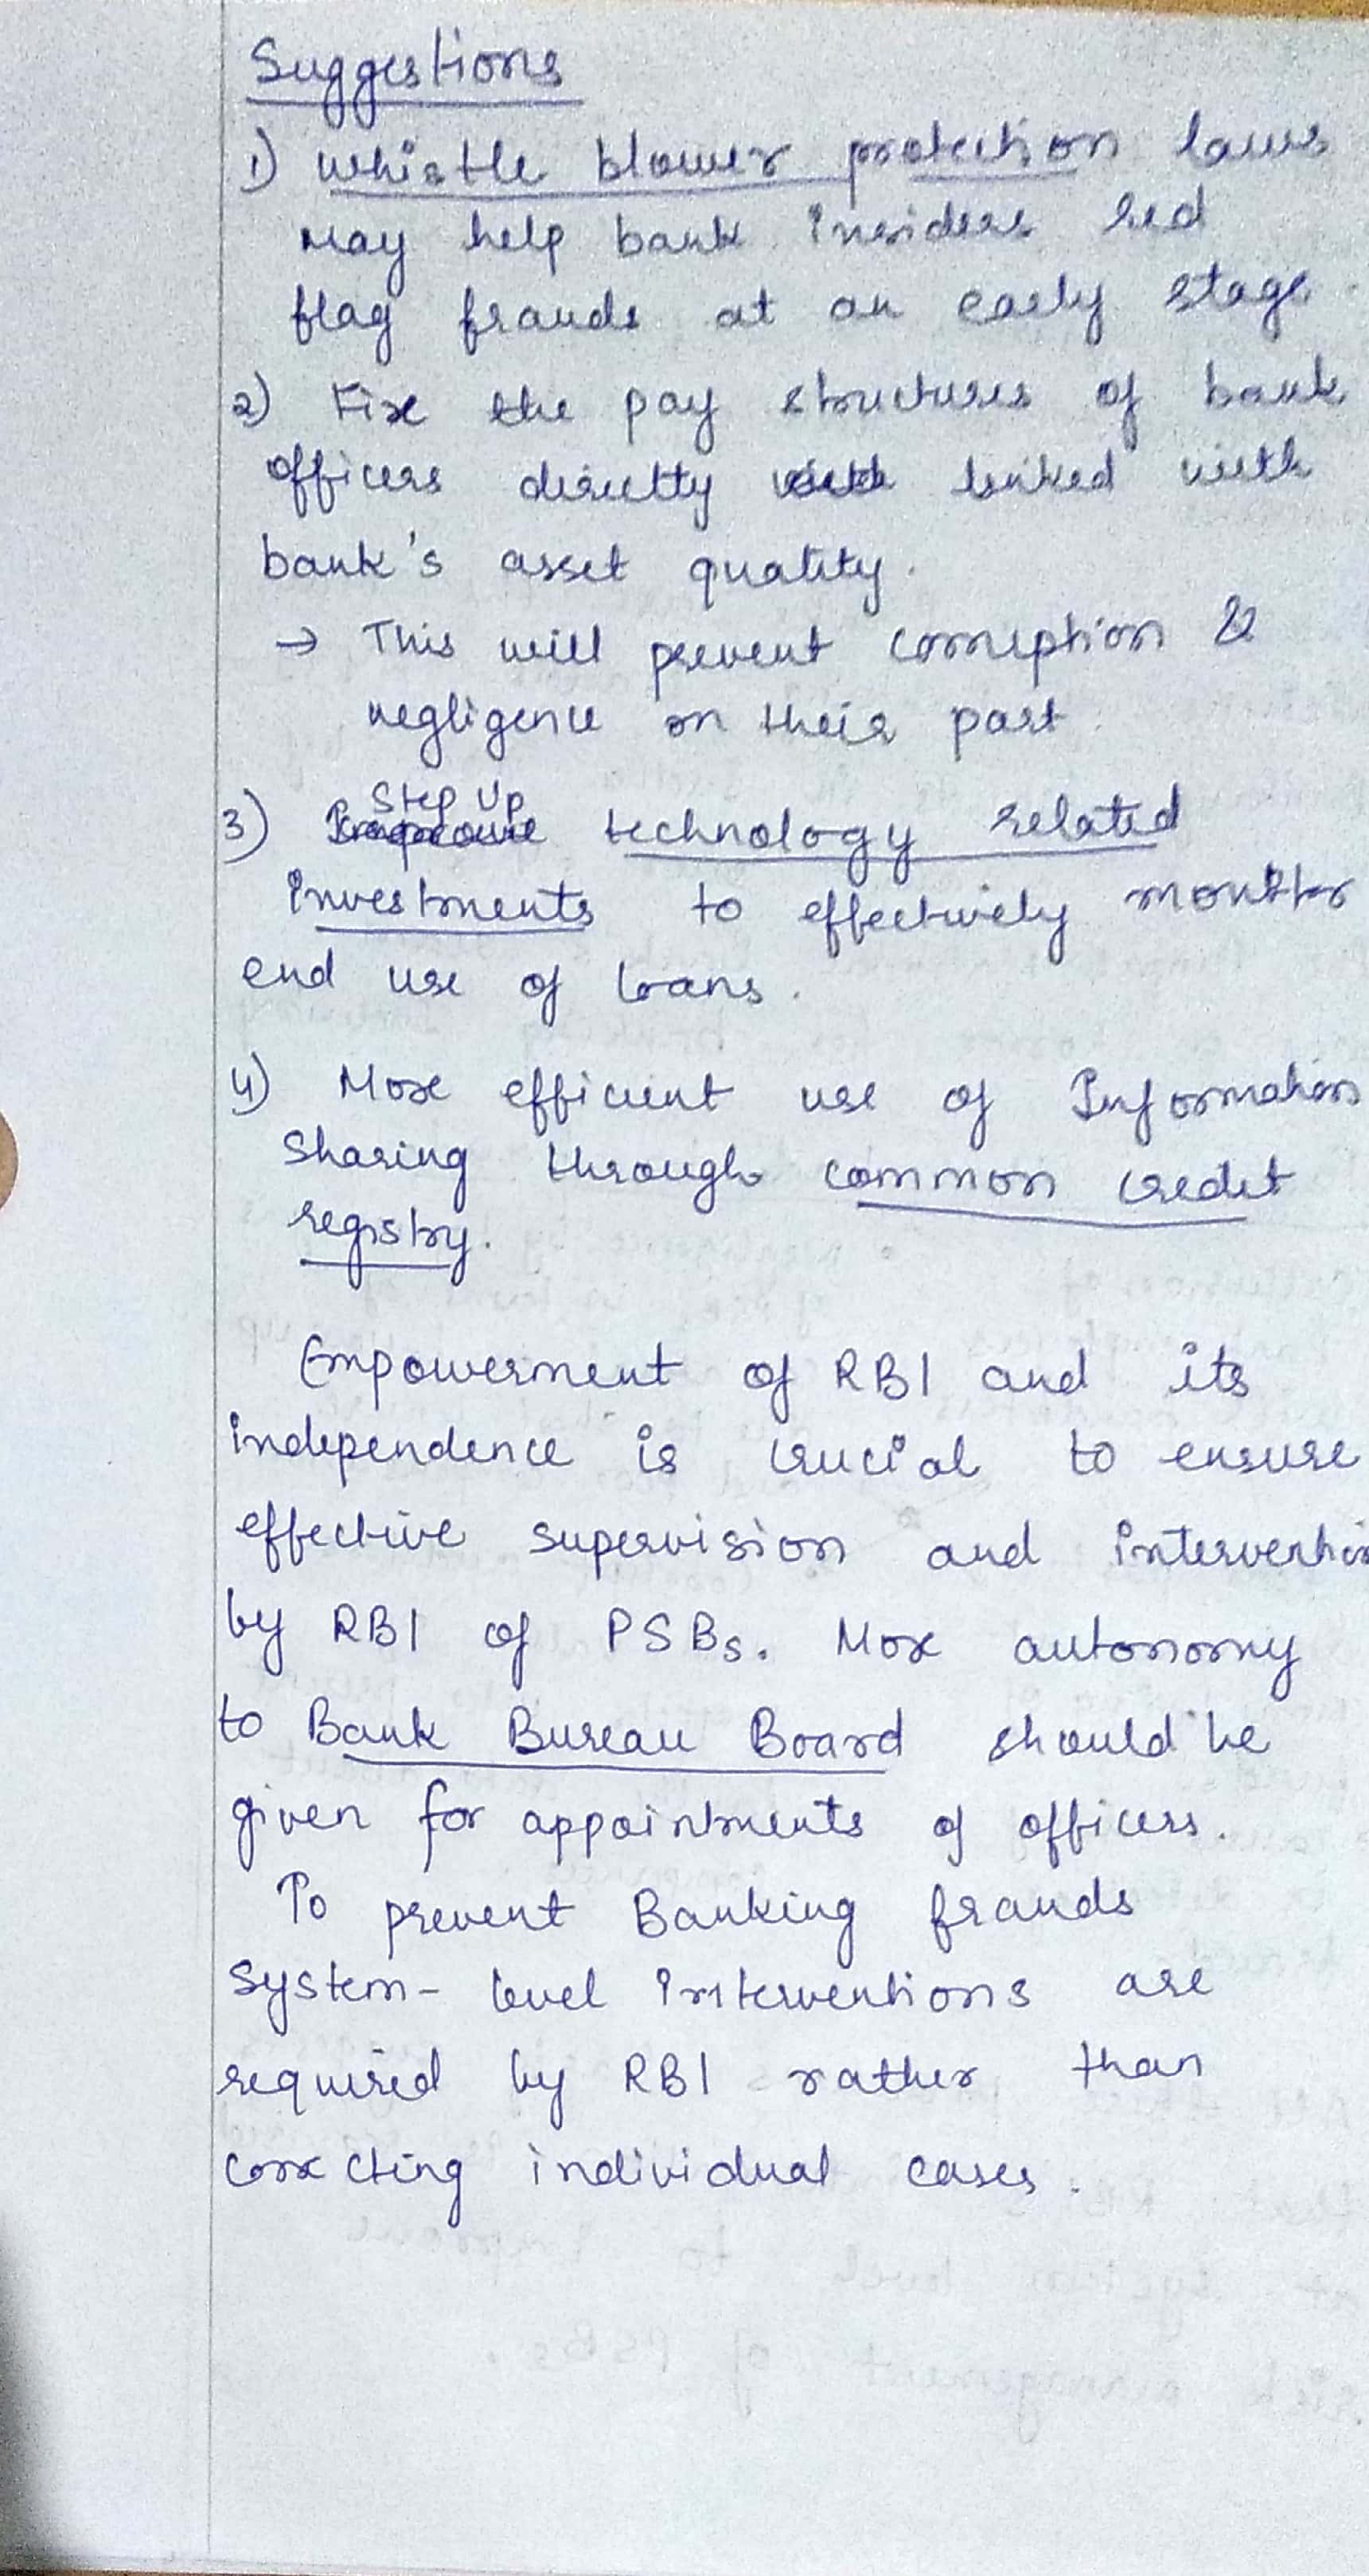 Suggestions
1) Whistle blower protection laws
may help bank insiders red
flag frauds at an early stage.
2) Fix the pay structures of bank
officers directly linked with
bank's asset quality.
→ This will prevent corruption &
negligence on their part
Step Up
3) Improve technology related
investments to effectively monitor
end use of loans.
4) More efficient use of Information
Sharing through common credit
registry.
Empowerment of RBI and its
independence is crucial to ensure
effective supervision and intervention
by RBI of PSBs. More autonomy
to Bank Bureau Board should be
given for appointments of officers.
To prevent Banking frauds
system-level interventions are
required by RBI rather than
correcting individual cases.